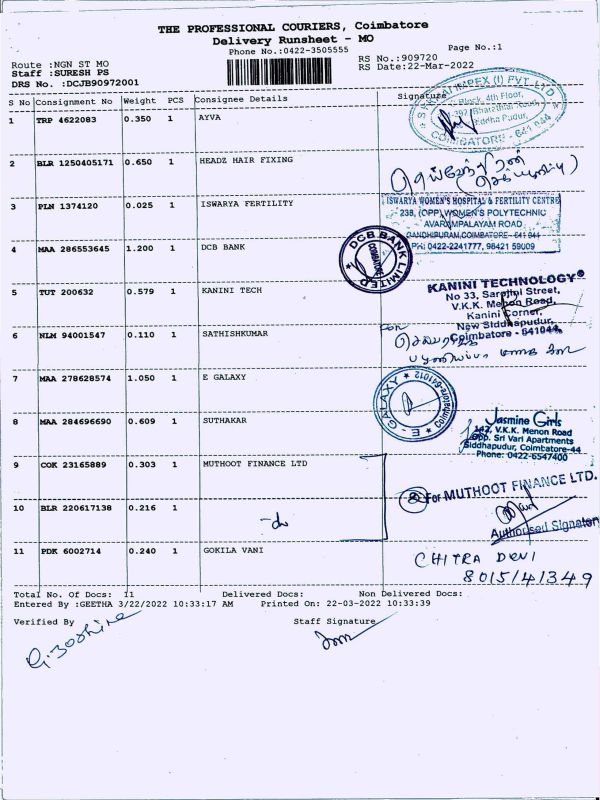 THE PROFESSIONAL COURIERS, Coimbatore
Delivery Runsheet - MO
Phone No.:0422-3505555
Page No.:1
Route :NGN ST MO
RS No.:909720
Staff :SURESH PS
RS Date:22-Mar-2022
DRS No. :DCJB90972001
S No Consignment No Weight PCS Consignee Details Signature
1 TRP 4622083 0.350 1 AYVA
(I) PVT LTD
Block, 4th Floor,
COIMBATORE - 641 044
2 BLR 1250405171 0.650 1 HEADZ HAIR FIXING
3 PLN 1374120 0.025 1 ISWARYA FERTILITY
ISWARYA WOMEN'S HOSPITAL & FERTILITY CENTRE
238, (OPP) WOMEN'S POLYTECHNIC
AVARAMPALAYAM ROAD
GANDHIPURAM, COIMBATORE - 641 044
PH: 0422-2241777, 98421 59009
4 MAA 286553645 1.200 1 DCB BANK
DCB BANK LIMITED
COIMBATORE
5 TUT 200632 0.579 1 KANINI TECH
KANINI TECHNOLOGY®
No 33, Sarojini Street,
V.K.K. Menon Road,
Kanini Corner,
New Siddhapudur,
Coimbatore - 641044.
6 NLM 94001547 0.110 1 SATHISHKUMAR
7 MAA 278628574 1.050 1 E GALAXY
E - GALAXY
Coimbatore-641012
8 MAA 284696690 0.609 1 SUTHAKAR
Jasmine Girls
142, V.K.K. Menon Road
Opp. Sri Vari Apartments
Siddhapudur, Coimbatore-44
Phone: 0422-6547400
9 COK 23165889 0.303 1 MUTHOOT FINANCE LTD
For MUTHOOT FINANCE LTD.
10 BLR 220617138 0.216 1
Authorised Signatory
11 PDK 6002714 0.240 1 GOKILA VANI
CHITRA DEVI
8015141349
Total No. Of Docs: 11 Delivered Docs: Non Delivered Docs:
Entered By :GEETHA 3/22/2022 10:33:17 AM Printed On: 22-03-2022 10:33:39
Verified By Staff Signature